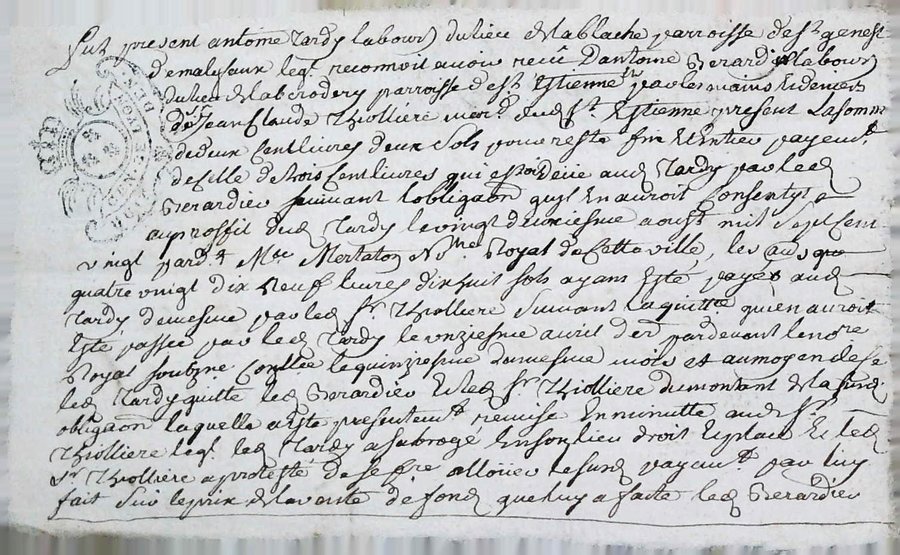 fut present antoine Tardy labour) du lieu de la blache parroisse de st genest
de malyfaux leql. reconnoit avoir recû d'antoine Berardier labour)
du lieu de la brodery parroisse de st Estienne par les mains et deniers
de sr Jean Claude Thiolliere mard. dud st Estienne present La somme
de deux cent livres deux sols pour reste fin et entier payemt.
de celle de trois cent livres qui estoit deüe aud Tardy par led
Berardier suivant l'obligaon quil en auroit consentye
au proffit dud Tardy le vingt deuxiesme aoust mil sept cent
vingt pardt Me Mertaton Nre Royal de cette ville, les autres
quatre vingt dix neuf livres dix huit sols ayans esté payes aud
Tardy de mesme par led sr Thiolliere suivant la quittce. qui en auroit
esté passée par led Tardy le onziesme avril der pardevant le nore
Royal soubzne Conllée le quinziesme du mesme mois et au moyen de ce
led Tardy quitte led Berardier et led sr. Thiolliere du montant de la susd.
obligaon laquelle a esté presentemt remise en minutte aud sr.
Thiolliere leql. led Tardy a subrogé en son lieu droit et place et led
sr Thiolliere a protesté de se fre allouer le susd payemt. par luy
fait sur le prix de la vente de fond que luy a faite led Berardier